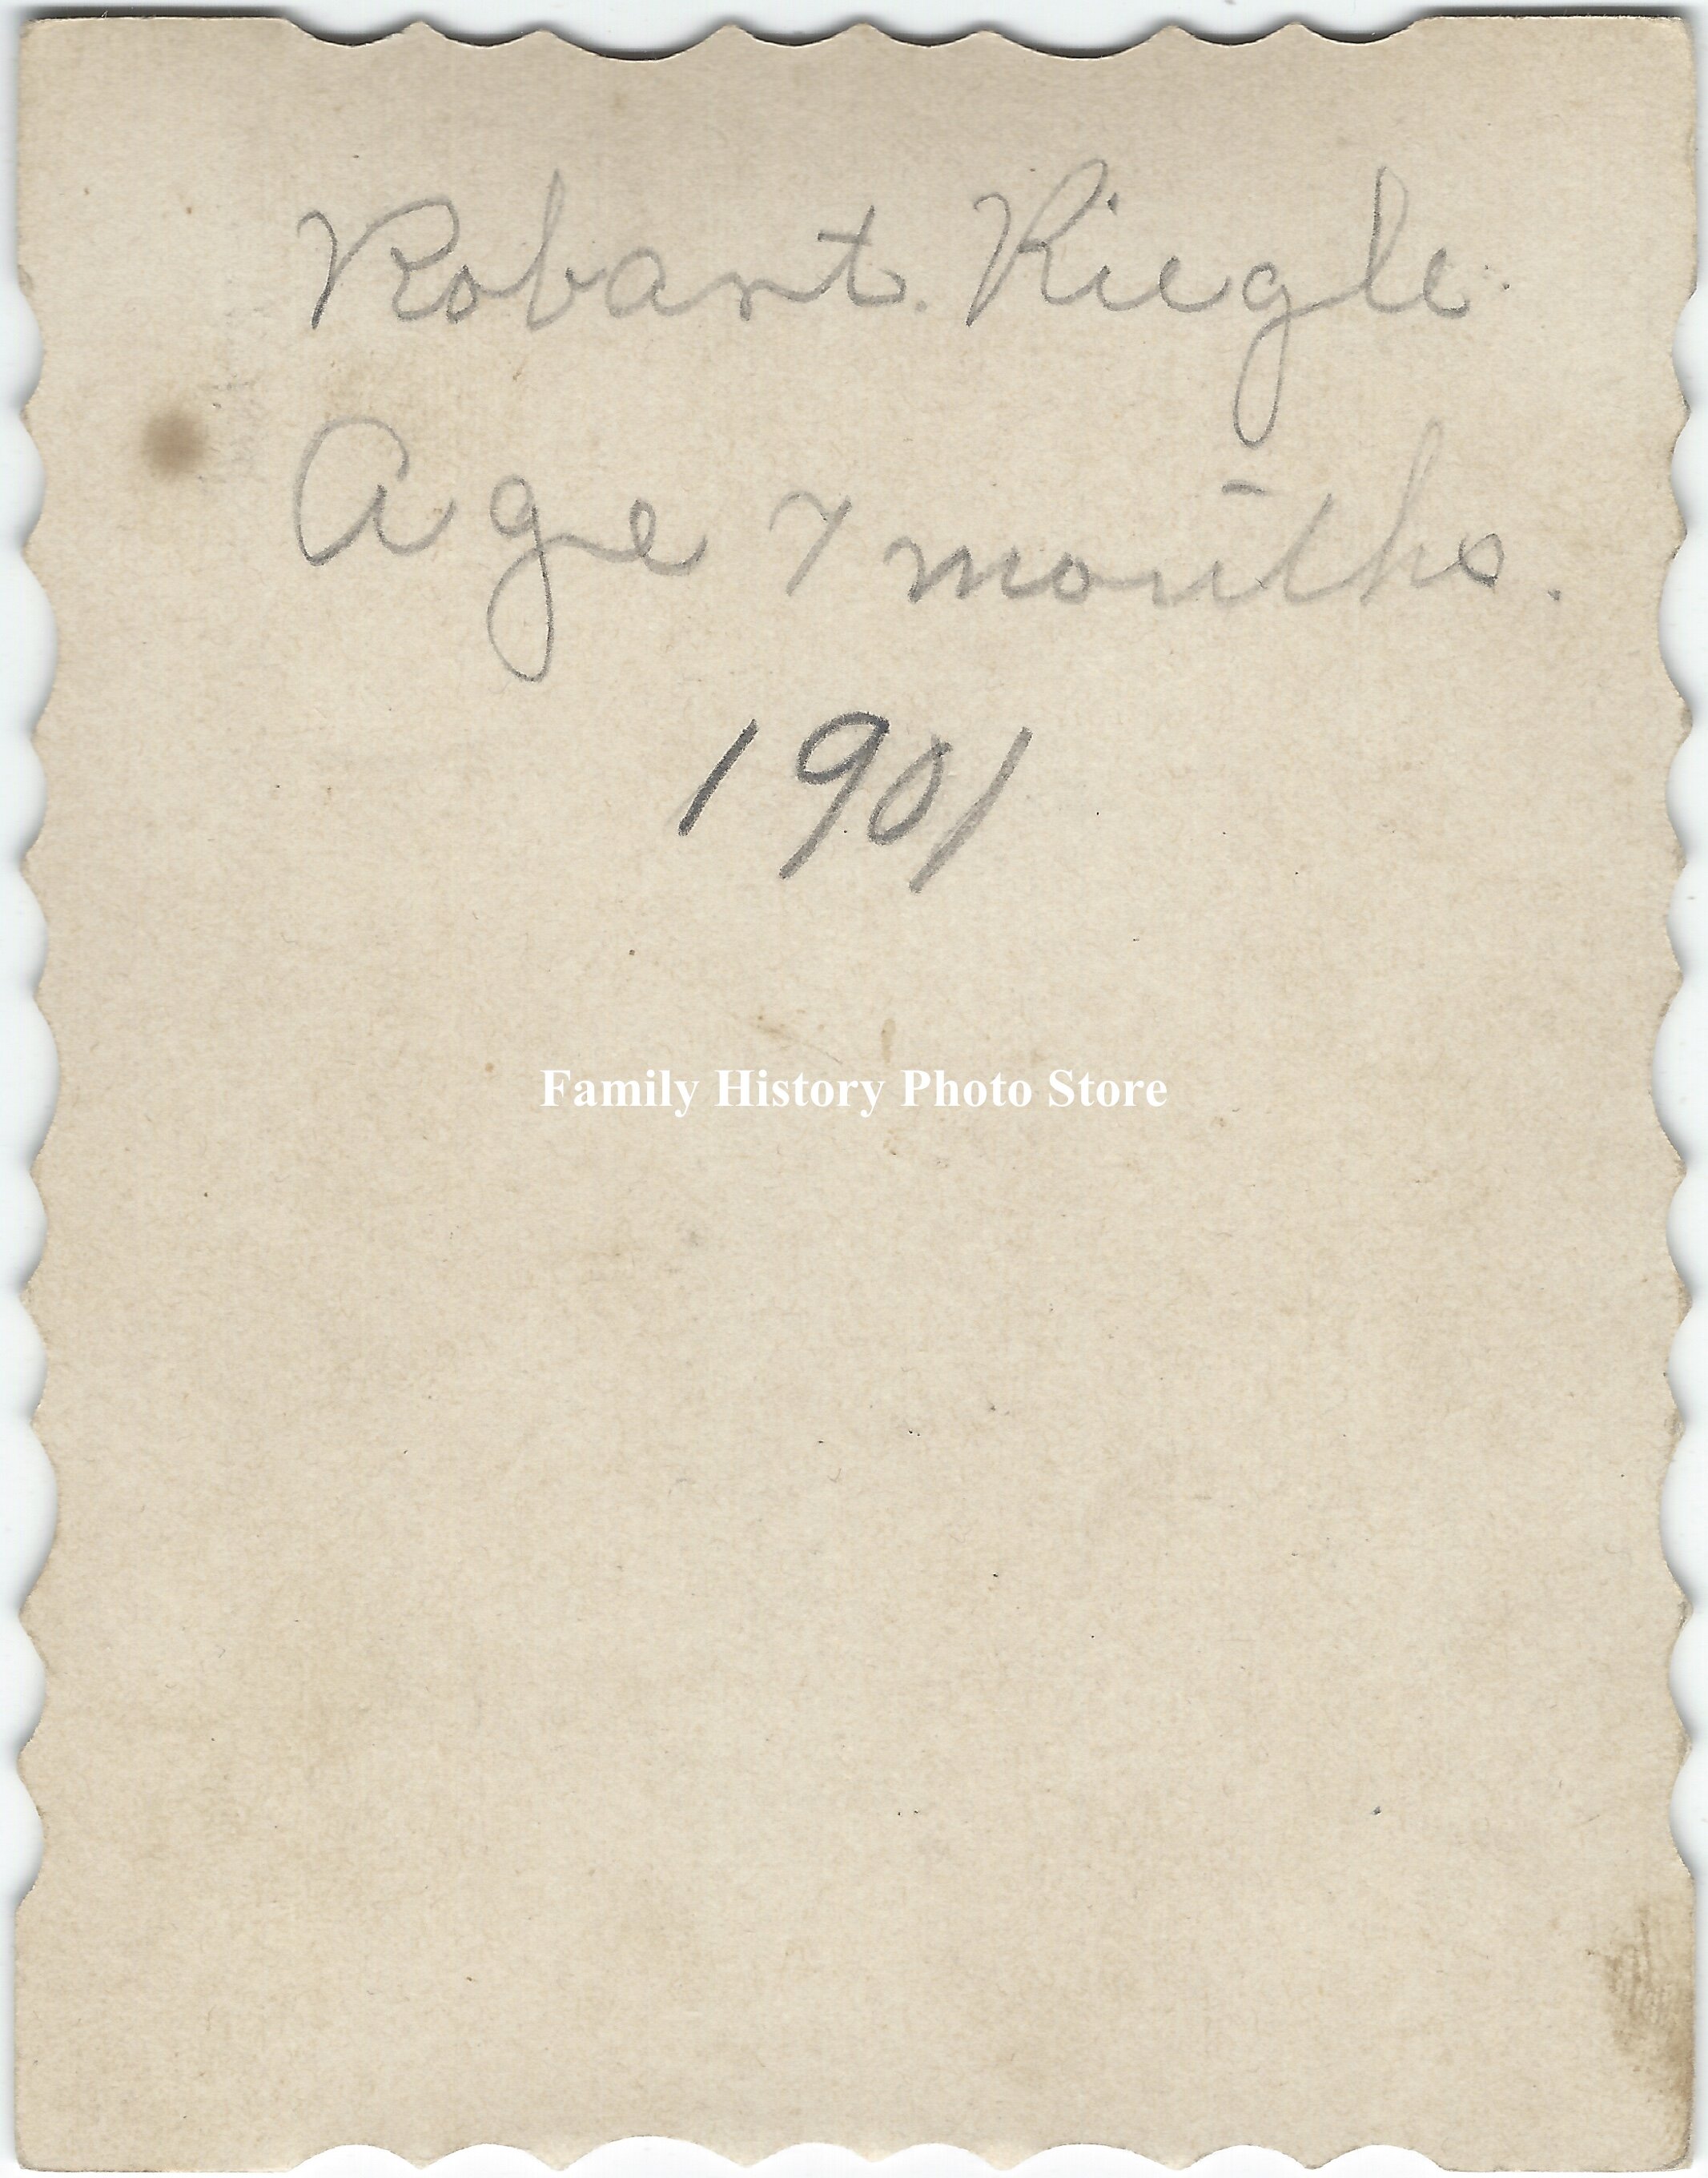 Robart. Riegle.
Age 7 months.
1901
Family History Photo Store